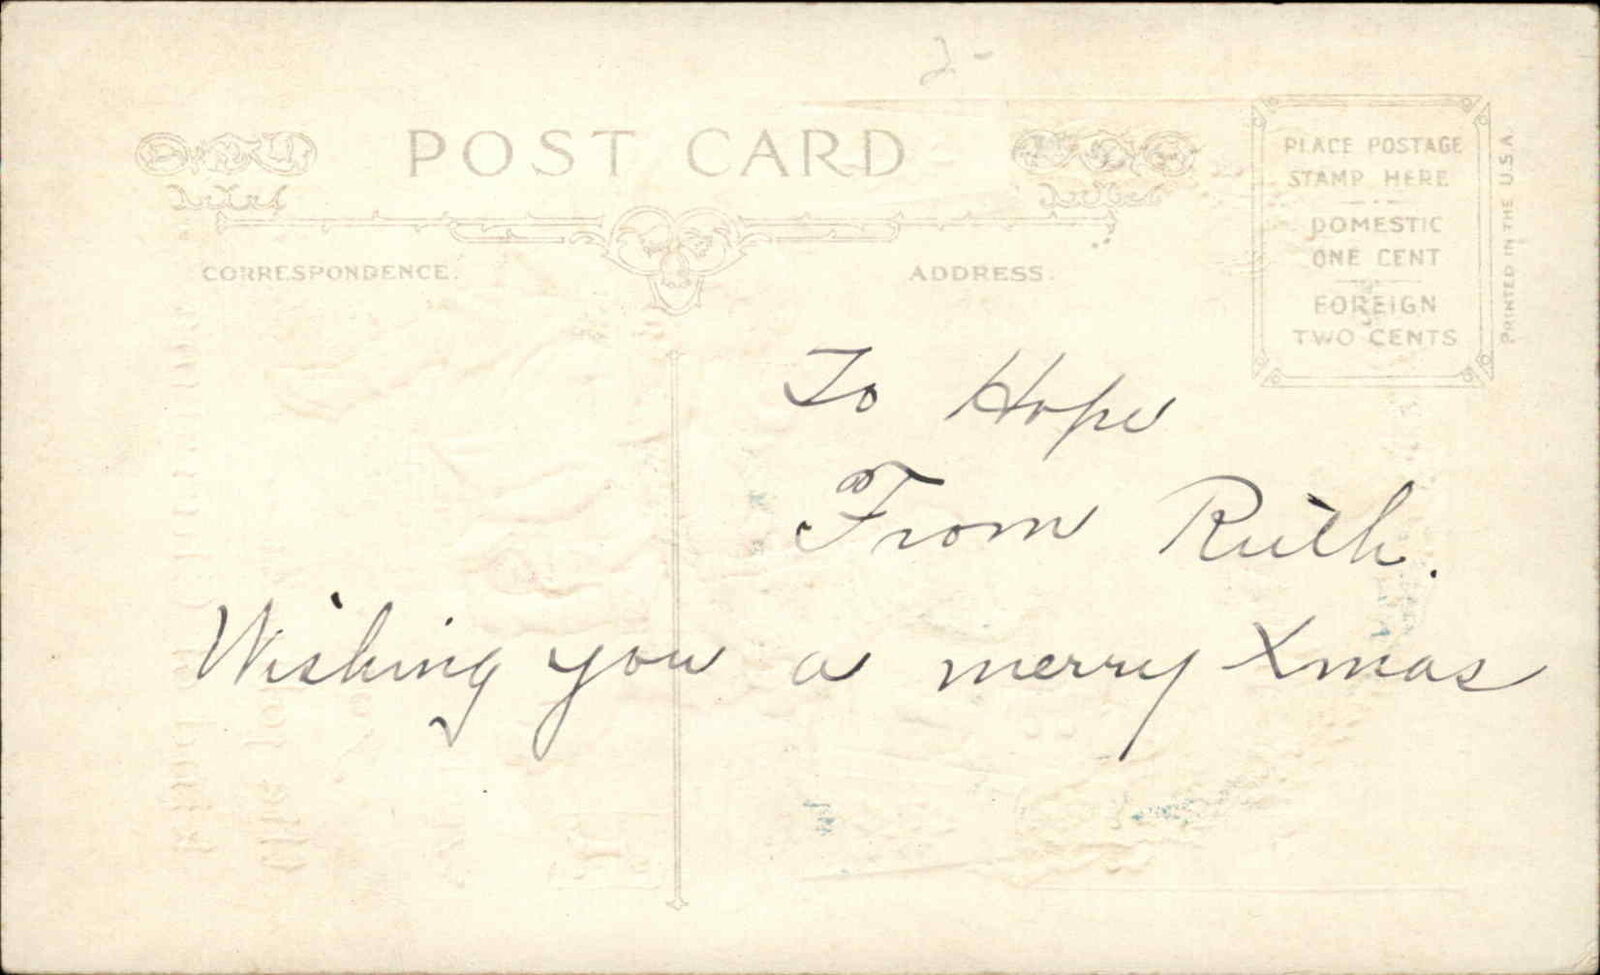 2-
POST CARD
PLACE POSTAGE
STAMP HERE
DOMESTIC
ONE CENT
FOREIGN
TWO CENTS
PRINTED IN THE U.S.A.
CORRESPONDENCE.
ADDRESS.
To Hope
From Ruth.
Wishing you a merry Xmas